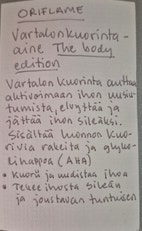 ORIFLAME
Vartalonkuorinta-
aine The body
edition
Vartalon kuorinta auttaa
aktivoimaan ihon uusiu-
tumista, elvyttää ja
jättää ihon sileäksi.
Sisältää luonnon kuo-
rivia rakeita ja glyko-
lihappoa (AHA)
• Kuorii ja uudistaa ihoa
• Tekee ihosta sileän
ja joustavan tuntuisen